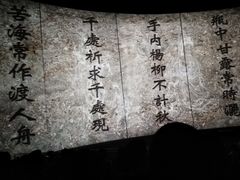 瓶中甘露常時灑
手內楊柳不計秋
千處祈求千處現
苦海常作渡人舟